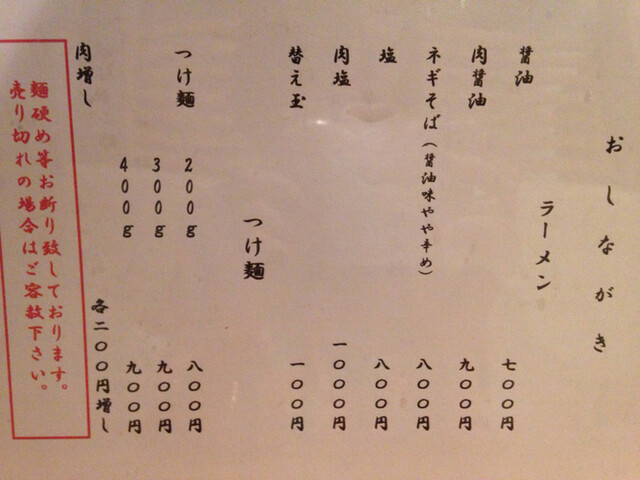 おしながき
ラーメン
醤油 七〇〇円
肉醤油 九〇〇円
ネギそば(醤油味やや辛め) 八〇〇円
塩 八〇〇円
肉塩 一〇〇〇円
替え玉 一〇〇円
つけ麺
つけ麺 200g 八〇〇円
300g 九〇〇円
400g 九〇〇円
肉増し 各二〇〇円増し
麺硬め等お断り致しております。
売り切れの場合はご容赦下さい。